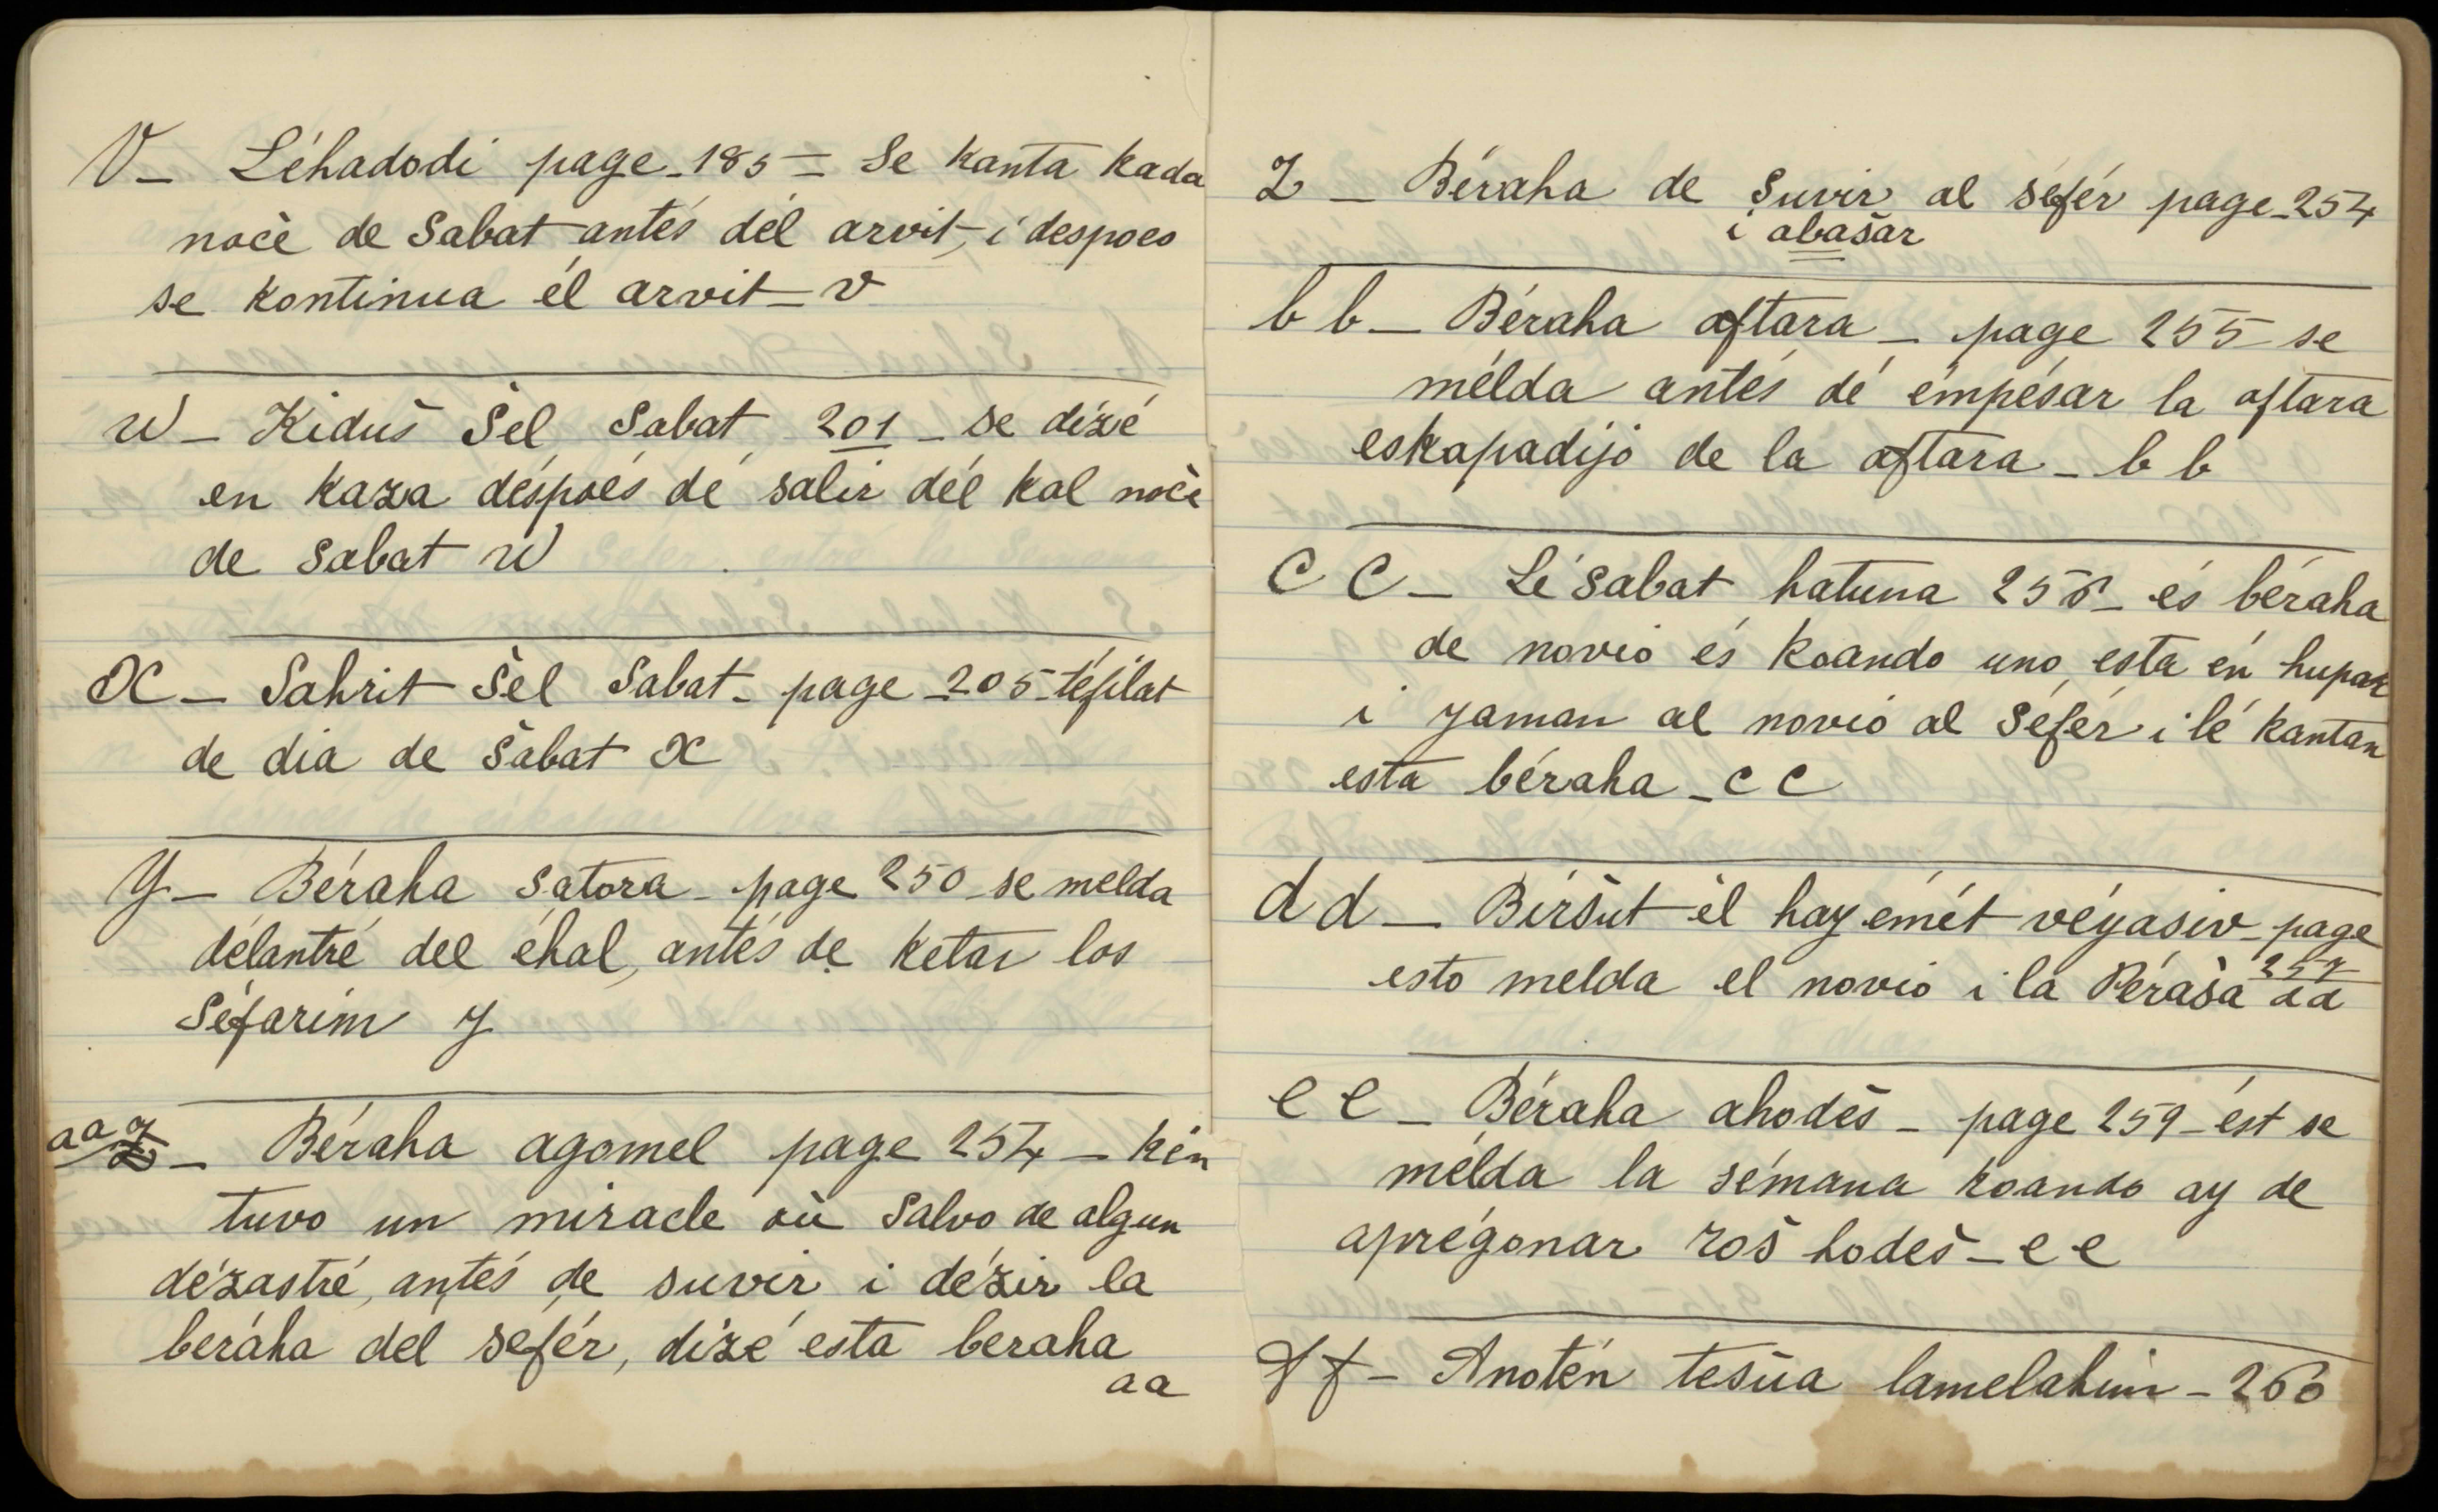 V_ Léhadodi page_185 = Se kanta kada
nocè de Sabat antés dél arvit, i despoes
se kontinua él arvit_v
W_ Kiduš Šel Sabat 201_ se dízé
en kaza déspoés dé salir dél kal nocè
de Sabat W
X_ Sahrit Šel Sabat_ page_205_téfilat
de dia de Šabat X
Y_ Béraha Satora_ page 250_se melda
délantré del éhal, antés de ketar los
Séfarim y
aa Z_ Béraha agomel page 254_ kén
tuvo un miracle où Salvo de algun
dézastré, antés de suvir i dézir la
beráha del sefér, dizé esta beraha
aa
Z_ Béraha de Suvir al séfér page_254
i abašar
bb_ Béraha aftara_ page 255 se
mélda antés dé émpésar la aftara
eskapadijo de la aftara_bb
CC_ Lé Sabat hatuna 256_és béraha
de novio és koando uno esta én hupa
i yaman al novio al Séfér i lé kantan
esta béraha_cc
dd_ Biršut él hay émét véyasiv_page
257
esto melda el novio i la Péraša dd
ee_ Béraha ahodeš_ page 259_ést se
mélda la sémana koando ay de
aprégonar roš hodeš_ee
ff_ Anotén tešua lamelahim_260